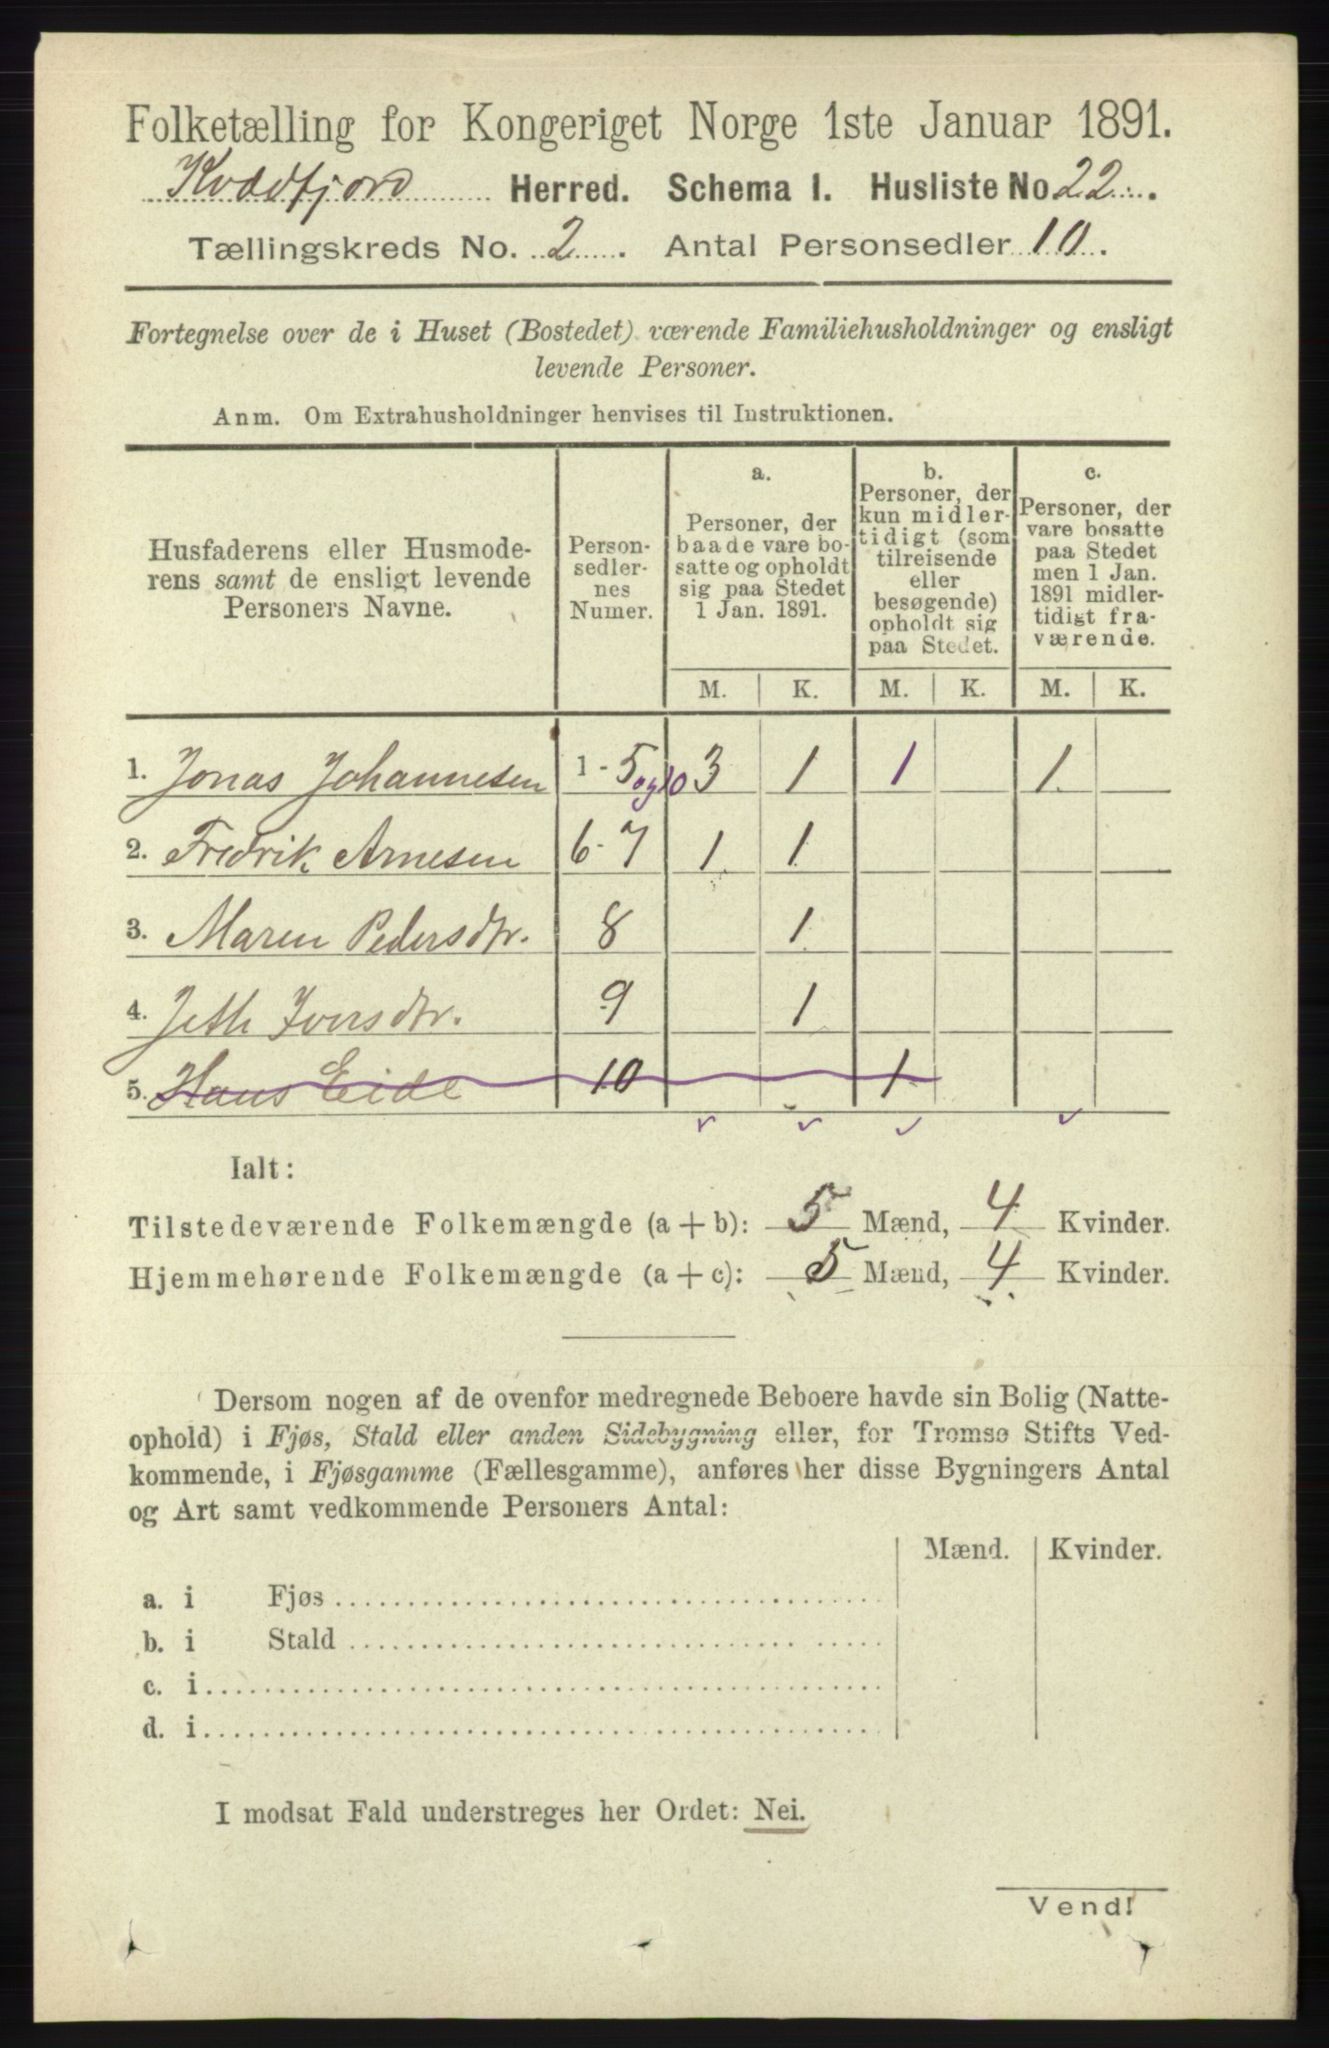 Folketælling for Kongeriget Norge 1ste Januar 1891.
Kvædfjord Herred. Schema 1. Husliste No. 22.
Tællingskreds No. 2. Antal Personsedler 10.
Fortegnelse over de i Huset (Bostedet) værende Familiehusholdninger og ensligt
levende Personer.
Anm. Om Extrahusholdninger henvises til Instruktionen.
Husfaderens eller Husmode-
rens samt de ensligt levende
Personers Navne.
Person-
sedler-
nes
Numer.
a.
Personer, der
baade vare bo-
satte og opholdt
sig paa Stedet
1 Jan. 1891.
b.
Personer, der
kun midler-
tidigt (som
tilreisende
eller
besøgende)
opholdt sig
paa Stedet.
c.
Personer, der
vare bosatte
paa Stedet
men 1 Jan.
1891 midler-
tidigt fra-
værende.
M. K. M. K. M. K.
1. Jonas Johannesen 1-5 og 10 3 1 1 1
2. Fredrik Arnesen 6-7 1 1
3. Maren Pedersdtr. 8 1
4. Jeth Iversdtr. 9 1
5. Hans Eide 10 1
Ialt:
Tilstedeværende Folkemængde (a + b): 5 Mænd, 4 Kvinder.
Hjemmehørende Folkemængde (a + c): 5 Mænd, 4 Kvinder.
Dersom nogen af de ovenfor medregnede Beboere havde sin Bolig (Natte-
ophold) i Fjøs, Stald eller anden Sidebygning eller, for Tromsø Stifts Ved-
kommende, i Fjøsgamme (Fællesgamme), anføres her disse Bygningers Antal
og Art samt vedkommende Personers Antal:
Mænd. Kvinder.
a. i Fjøs
b. i Stald
c. i
d. i
I modsat Fald understreges her Ordet: Nei.
Vend!